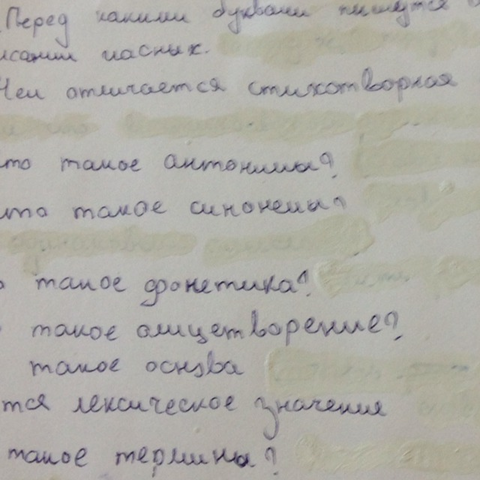 Перед какими буквами пишутся
писании гласных.
Чем отличается стихотворная
то такое антонимы?
что такое синонемы?
о такое фонетика?
о такое олицетворение?
такое основа
тся лексическое значения
такое термины?